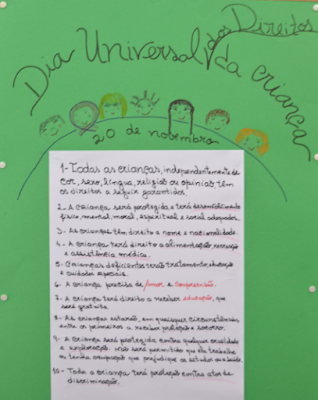 Dia Universal dos Direitos da criança
20 de novembro
1- Todas as crianças, independentemente de
cor, sexo, língua, religião ou opinião têm
os direitos a seguir garantidos.
2- A criança será protegida e terá desenvolvimento
físico, mental, moral, espiritual e social adequados.
3- As crianças têm direito a nome e nacionalidade.
4- A criança terá direito a alimentação, recreação
e assistência médica.
5- Crianças deficientes terão tratamento, educação
e cuidados especiais.
6- A criança precisa de amor e compreensão.
7- A criança terá direito a receber educação, que
será gratuita.
8- As crianças estarão, em quaisquer circunstâncias,
entre os primeiros a receber proteção e socorro.
9- A criança será protegida contra qualquer crueldade
e exploração. Não será permitido que ela trabalhe
ou tenha ocupação que prejudique os estudos ou a saúde.
10- Toda a criança terá proteção contra atos de
discriminação.